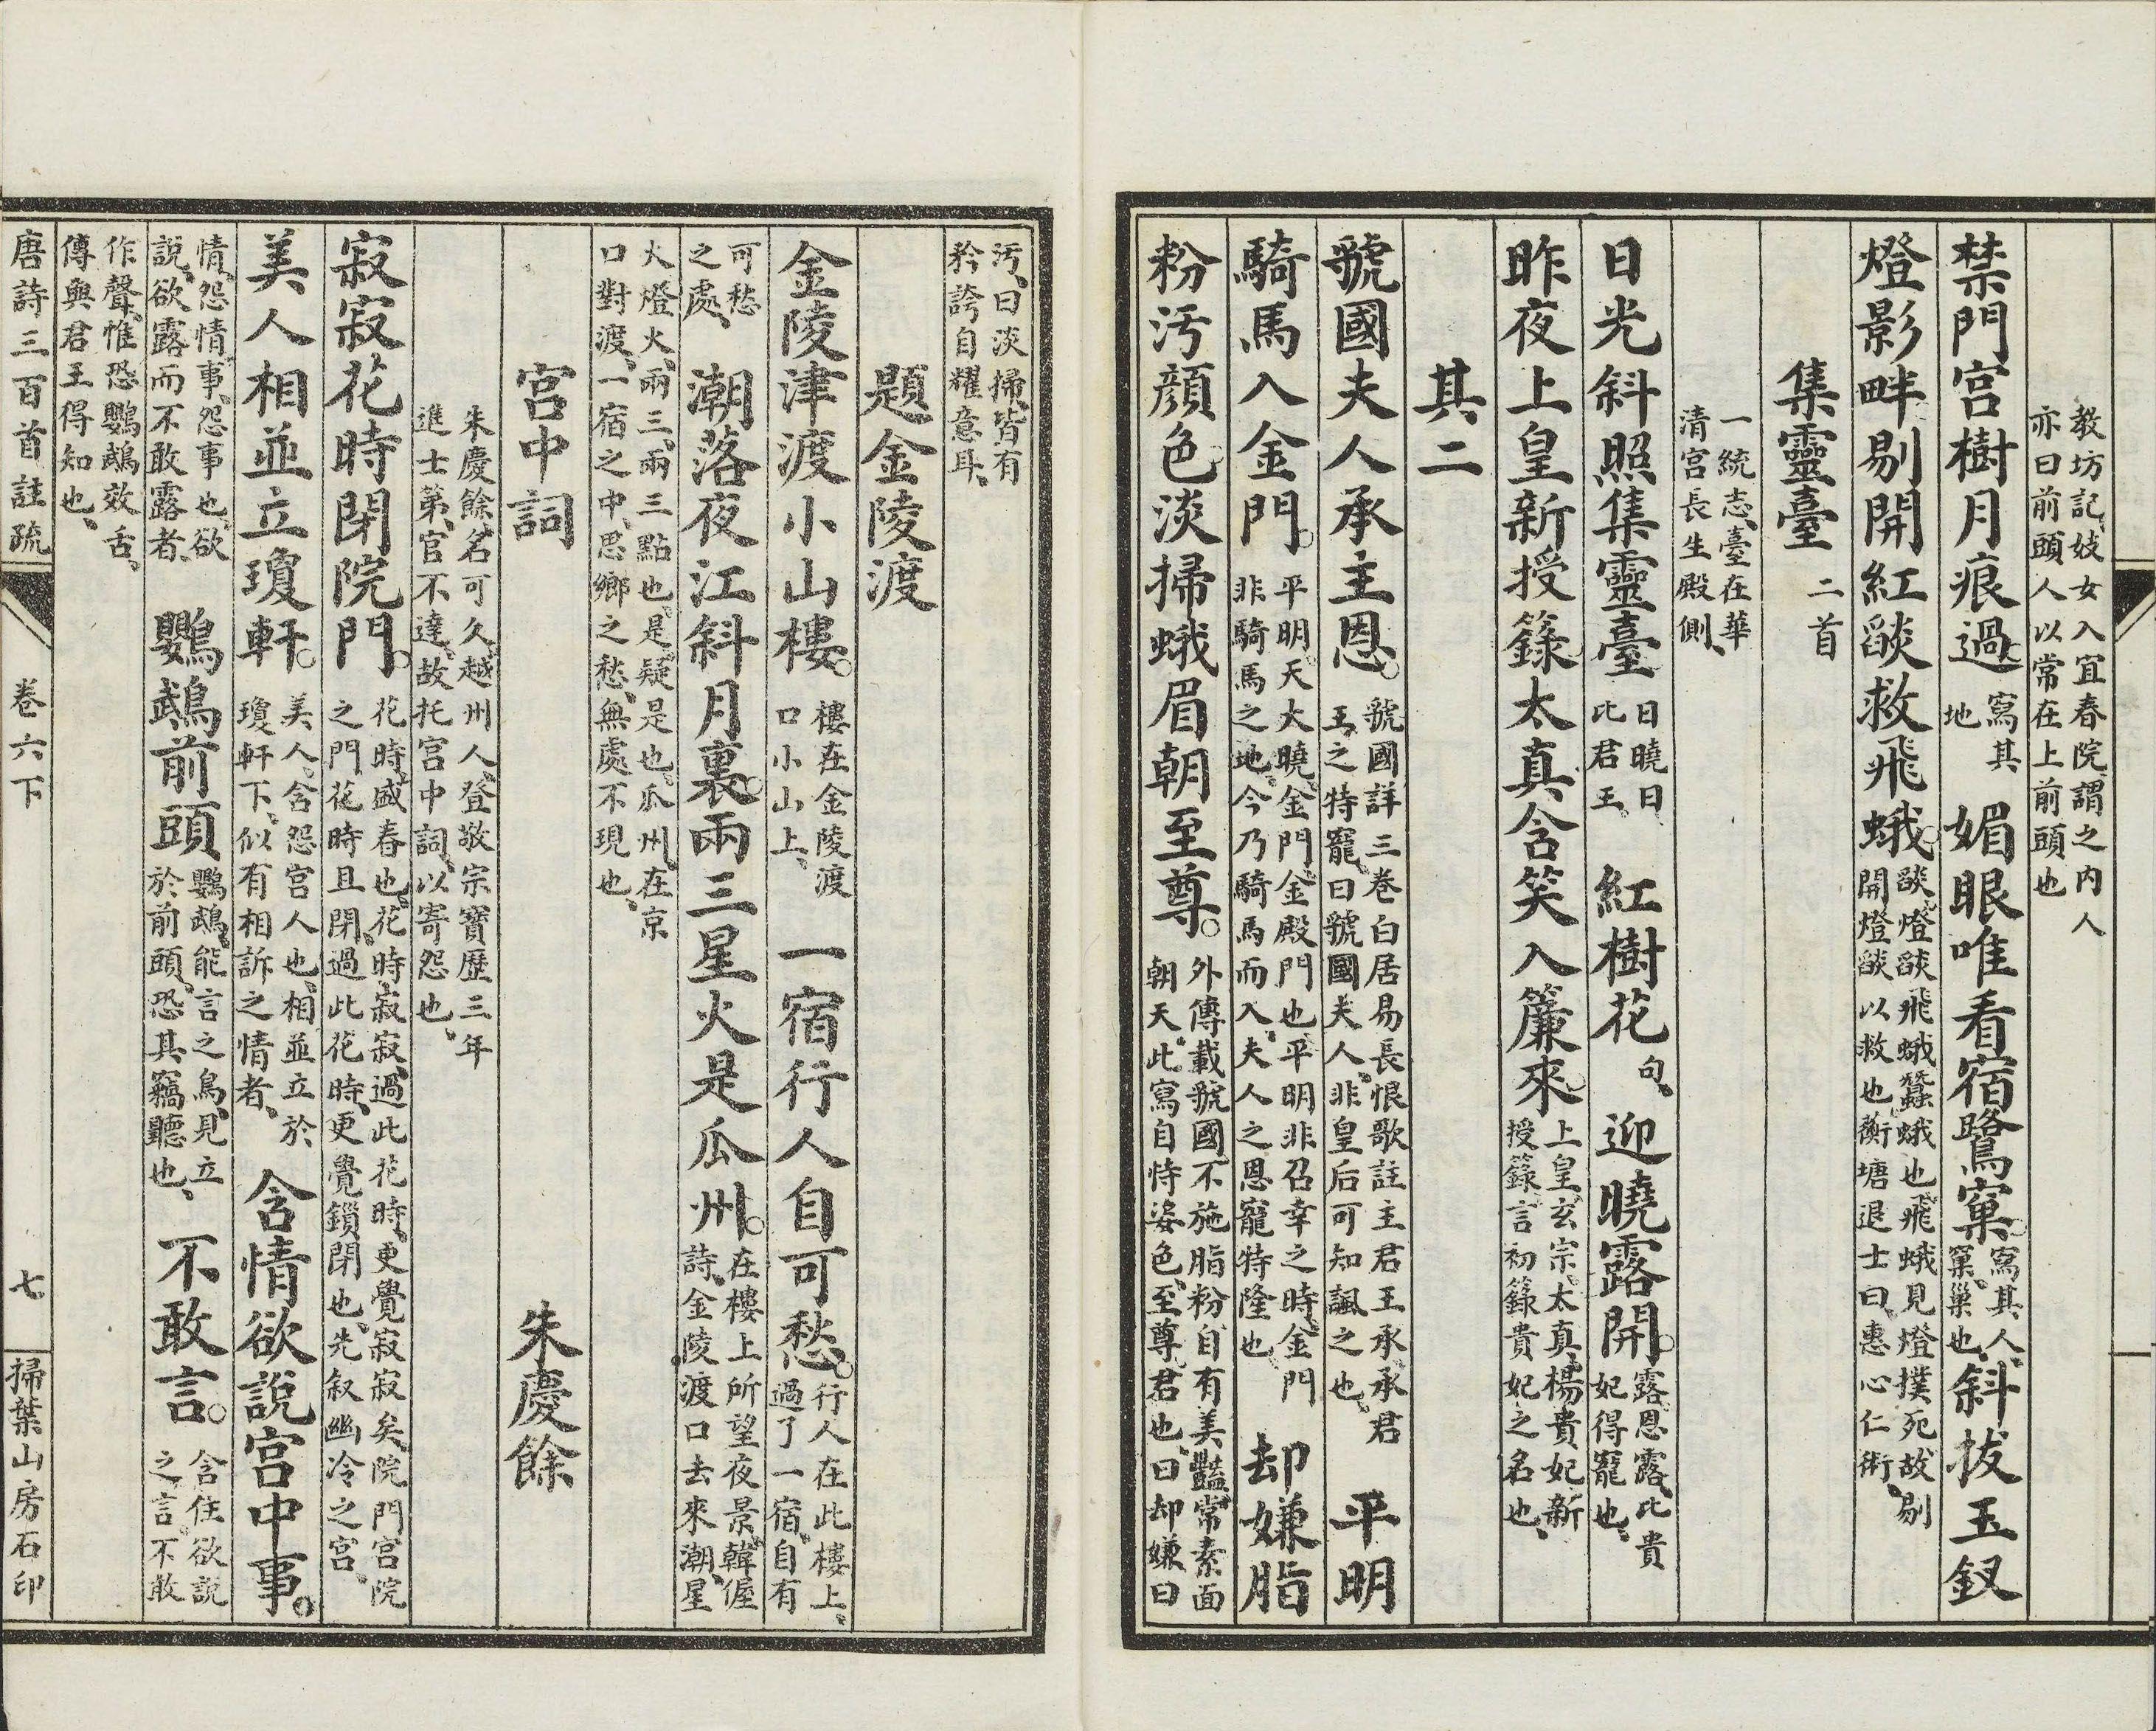 教坊記、妓女入宜春院、謂之內人
亦曰前頭人以常在上前頭也
禁門宮樹月痕過、寫其地 媚眼唯看宿鷺窠。寫其人、窠、巢也、斜拔玉釵
燈影畔剔開紅燄救飛蛾。燄、燈燄、飛蛾、蠶蛾也、飛蛾見燈撲死故剔開燈燄以救也蘅塘退士曰、惠心仁術、
集靈臺 二首
一統志、臺在華
清宮長生殿側、
日光斜照集靈臺 日曉日比君王 紅樹花 句、 迎曉露開。露恩露、比貴妃得寵也、
昨夜上皇新授籙太真含笑入簾來。上皇、玄宗、太真、楊貴妃新授籙、言初籙貴妃之名也、
其二
虢國夫人承主恩。虢國詳三卷白居易長恨歌註主君王承承君王之特寵、曰虢國夫人、非皇后可知諷之也、 平明
騎馬入金門。平明、天大曉、金門、金殿門也、平明非召幸之時、金門非騎馬之地、今乃騎馬而入、夫人之恩寵特隆也、 却嫌脂
粉汚顔色淡掃蛾眉朝至尊。外傳載虢國不施脂粉、自有美豔、常素面朝天、此寫自恃姿色、至尊、君也、曰却嫌曰
汚、曰淡掃、皆有
矜誇自耀意耳、
題金陵渡
金陵津渡小山樓。樓在金陵渡口小山上、 一宿行人自可愁。行人在此樓上、過了一宿、自有
可愁之處、 潮落夜江斜月裏。兩三星火是瓜州。在樓上所望夜景、韓偓詩、金陵渡口去來潮、星
火燈火、兩三、兩三點也、是、疑是也、瓜州、在京
口對渡、一宿之中、思鄉之愁、無處不現也、
宮中詞 朱慶餘
朱慶餘、名可久、越州人、登敬宗寶歷三年
進士第、官不達、故托宮中詞、以寄怨也、
寂寂花時閉院門。花時、盛春也、花時寂寂、過此花時、更覺寂寂矣、院門宮院之門、花時且閉、過此花時、更覺鎖閉也、先叙幽冷之宮、
美人相並立瓊軒。美人、含怨宮人也、相並立於瓊軒下、似有相訴之情者、 含情欲說宮中事。
情、怨情、事、怨事也、欲說、欲露而不敢露者、 鸚鵡前頭鸚鵡、能言之鳥、見立於前頭、恐其竊聽也、 不敢言。含住欲說之言、不敢
作聲、惟恐鸚鵡效舌、
傳與君王得知也、
唐詩三百首註疏 卷六下 七 掃葉山房石印